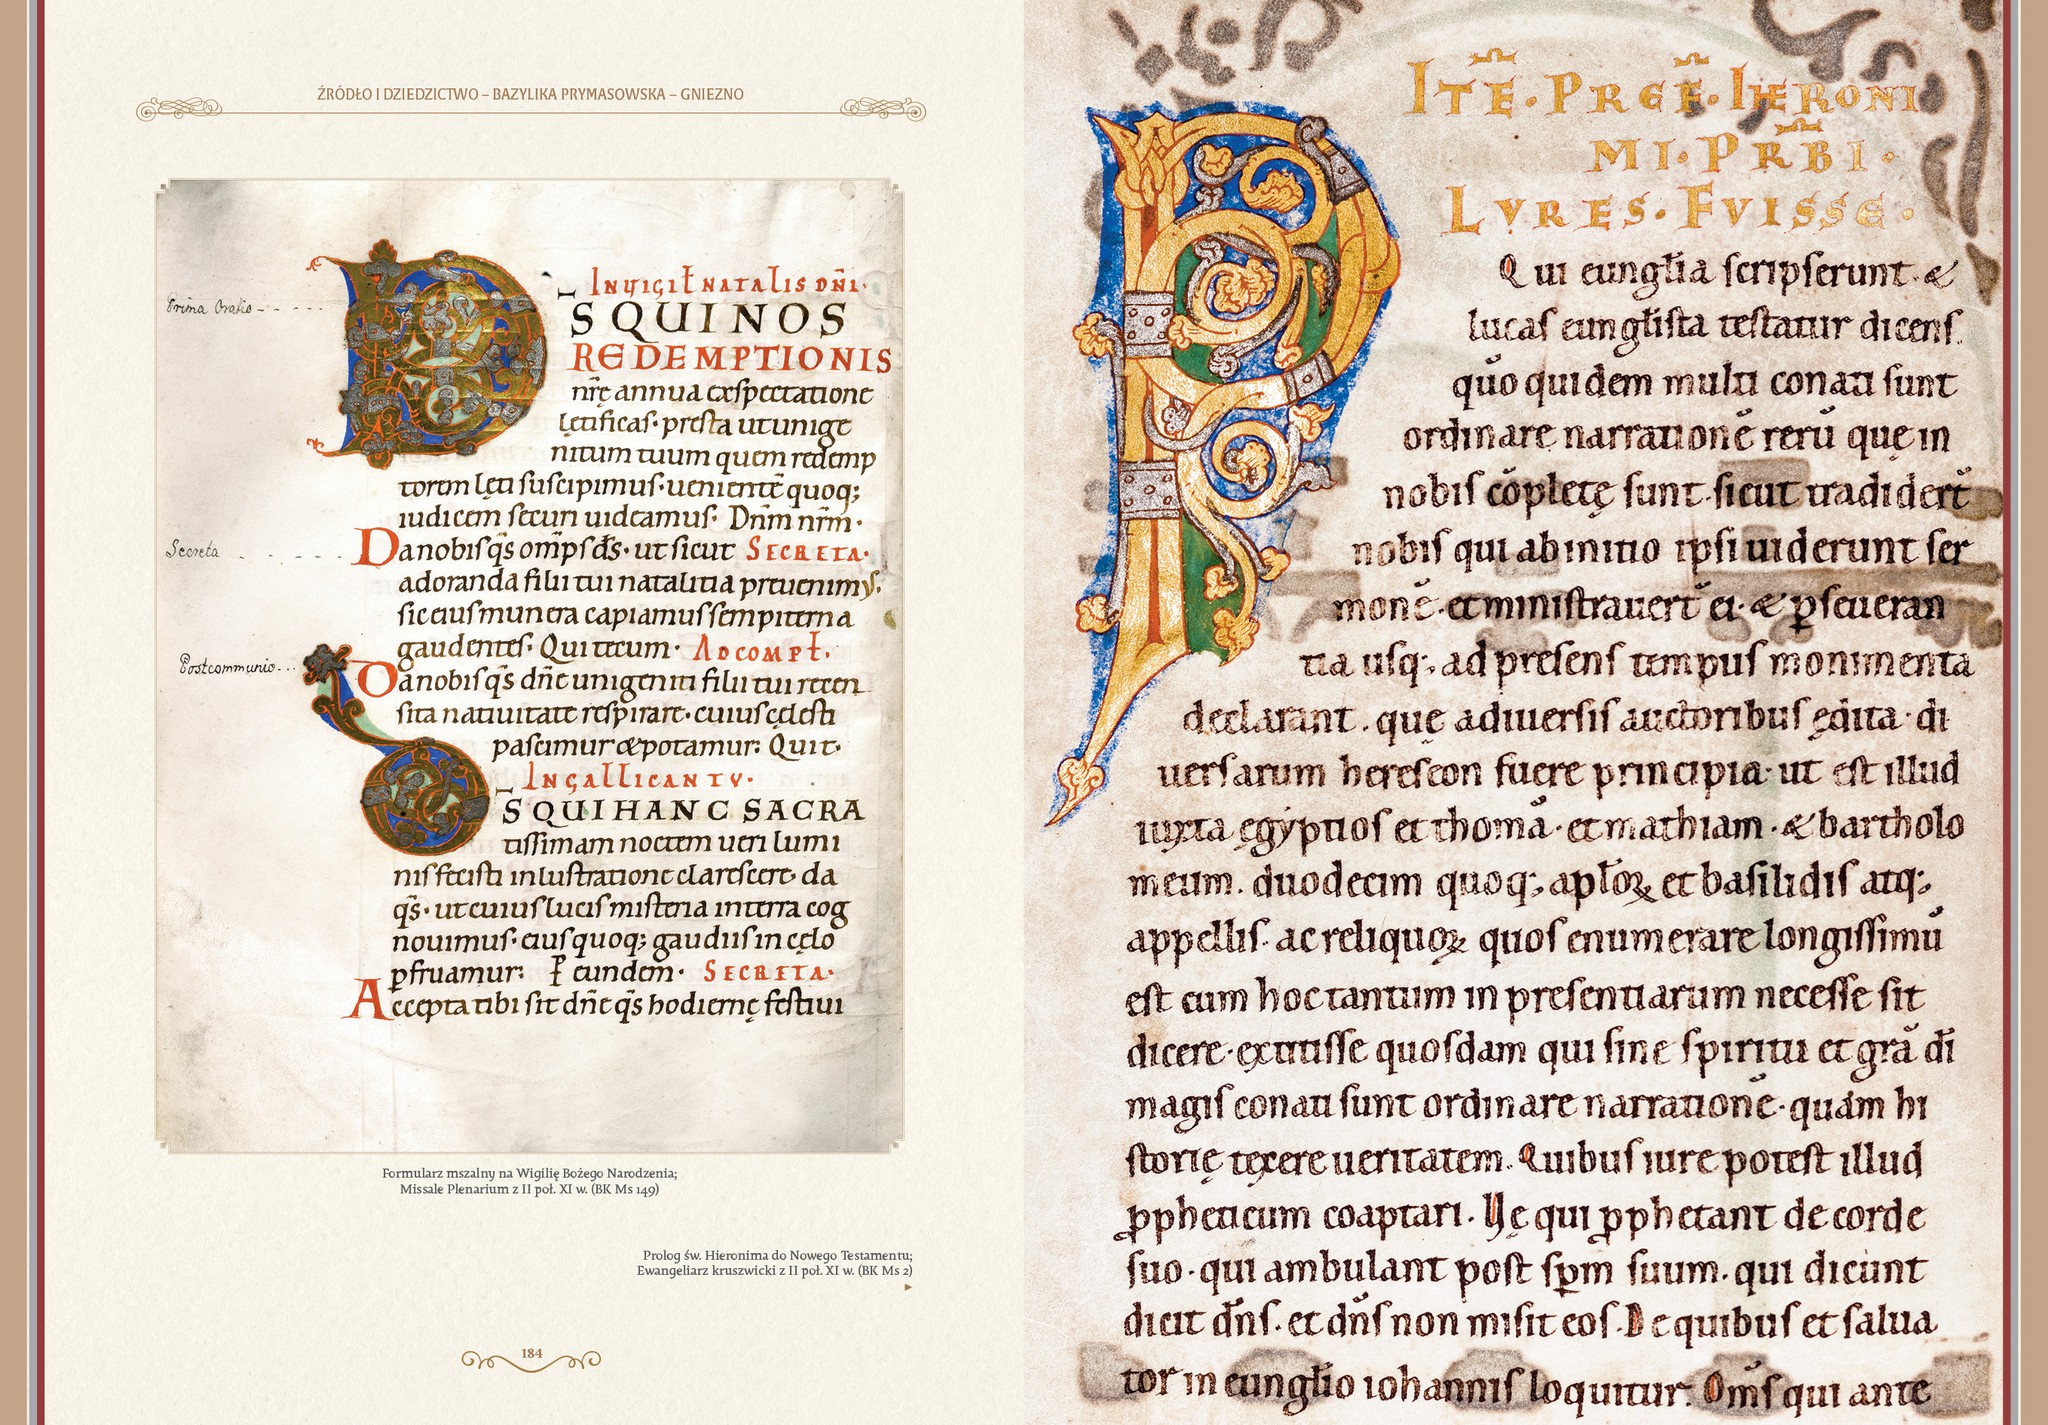 ŹRÓDŁO I DZIEDZICTWO – BAZYLIKA PRYMASOWSKA – GNIEZNO
Prima Oratio
INVIGIŁ NATALIS DN̄I·
S QUI NOS
REDEMPTIONIS
nr̄ę annua exspectatione
lętificas· presta ut unige
nitum tuum quem redemp
torem lęti suscipimus· uenientē quoq;
iudicem securi uideamus· Dn̄m nr̄m·
Secreta
Da nobis q̄s om̄ps d̄s· ut sicut SECRETA·
adoranda filii tui natalitia preuenimus·
sic eius munera capiamus sempiterna
gaudentes· Qui tecum· AD COMPŁ·
Postcommunio
Da nobis q̄s dn̄e unigeniti filii tui recen
sita natiuitate respirare· cuius cęlesti
pascimur & potamur· Qui t·
IN GALLICANTV·
S QUI HANC SACRA
tissimam noctem ueri lumi
nis fecisti inlustratione clarescere· da
q̄s· ut cuius lucis misteria in terra cog
nouimus· eius quoq; gaudiis in cęlo
ꝑfruamur· P eundem· SECRETA·
Accepta tibi sit dn̄e q̄s hodiernę festiui
Formularz mszalny na Wigilię Bożego Narodzenia;
Missale Plenarium z II poł. XI w. (BK Ms 149)
Prolog św. Hieronima do Nowego Testamentu;
Ewangeliarz kruszwicki z II poł. XI w. (BK Ms 2)
184
ITĒ· PREF̄· IHERONI
MI· PR̄BI·
P LVRES· FVISSE·
Qui eungłia scripserunt· &
lucas eungłista testatur dicens.
quo quidem multi conati sunt
ordinare narrationē rerū quę in
nobis cōpletę sunt· sicut tradidert̄
nobis qui ab initio ipsi uiderunt ser
monē· et ministrauert̄ ei· & ꝑseueran
tia usq; ad presens tempus monimenta
declarant· que a diuersis auctoribus ędita· di
uersarum hereseon fuere principia· ut est illud
iuxta egyptios et thomā· et mathiam· & bartholo
meum. duodecim quoq; apłoꝝ et basilidis atq;
appellis· ac reliquoꝝ quos enumerare longissimū
est cum hoc tantum in presentiarum necesse sit
dicere· extitisse quosdam qui sine spiritu et grā di
magis conati sunt ordinare narrationē· quam hi
storię texere ueritatem. Quibus iure potest illud
ꝓpheticum coaptari. Vę qui ꝓphetant de corde
suo· qui ambulant post sp̄m suum. qui dicunt
dicit dn̄s. et dn̄s non misit eos. De quibus et salua
tor in eungłio iohannis loquitur. Om̄s qui ante